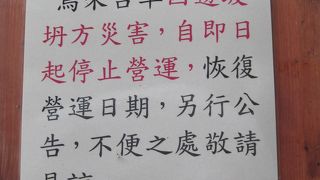 坍方災害，自即日
起停止營運，恢復
營運日期，另行公
告，不便之處敬請